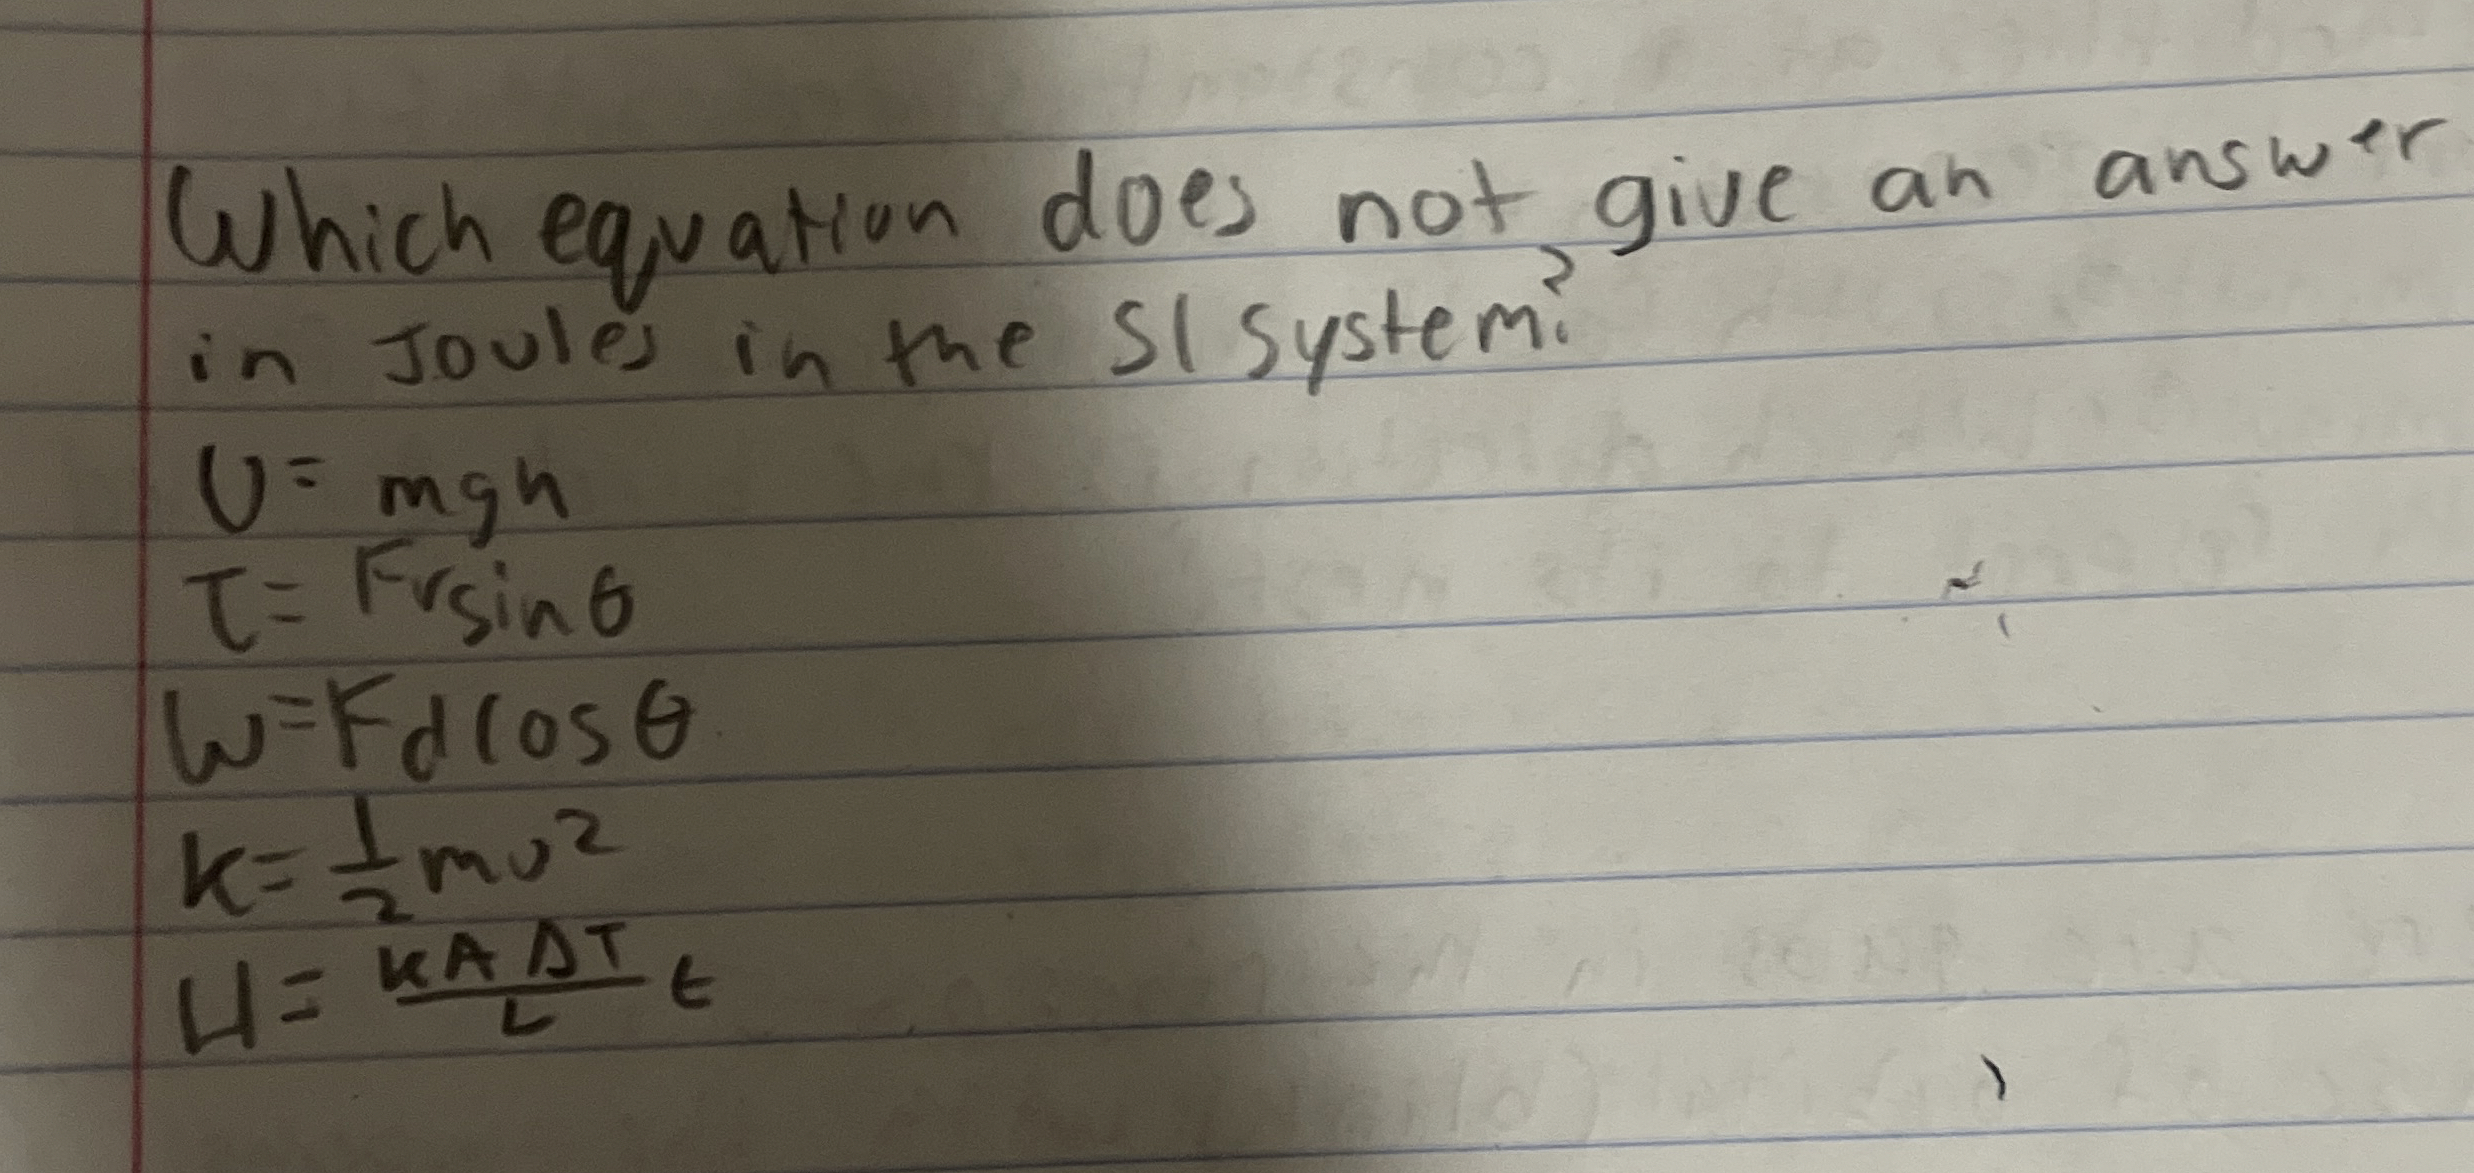 Which equation does not give an answer
in Joules in the SI system?
U = mgh
τ = Fr sin θ
W = Fd cos θ
K = 1/2 mv²
H = kAΔT/L t